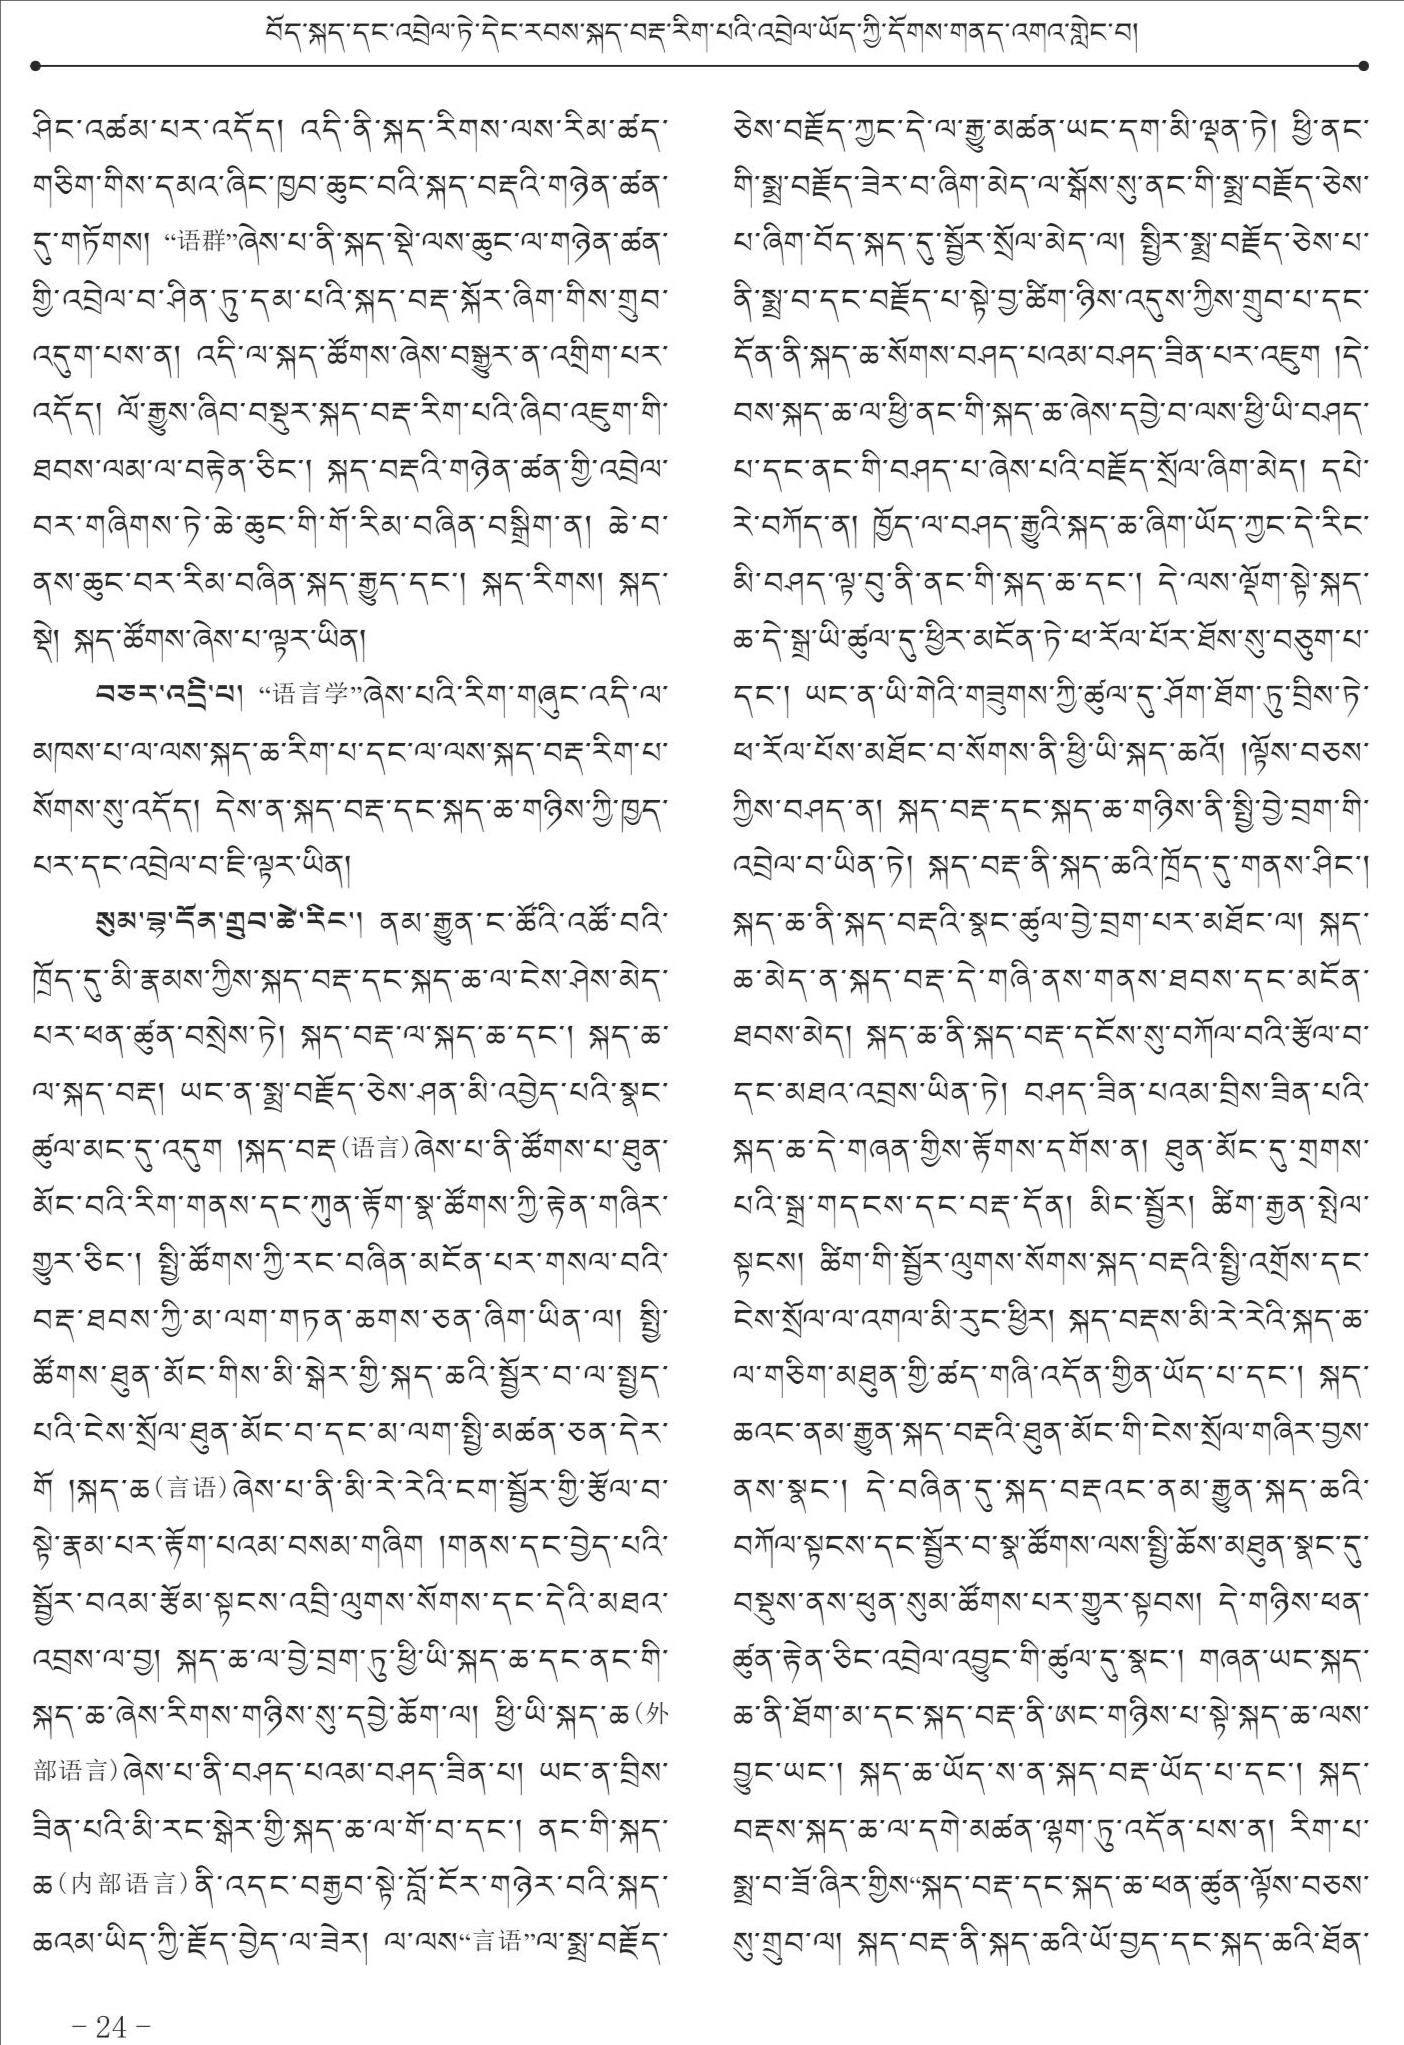 བོད་སྐད་དང་འབྲེལ་ཏེ་དེང་རབས་སྐད་བརྡ་རིག་པའི་འབྲེལ་ཡོད་ཀྱི་དོགས་གནད་འགའ་གླེང་བ།
ཤིང་འཚམ་པར་འདོད། འདི་ནི་སྐད་རིགས་ལས་རིམ་ཚད་
གཅིག་གིས་དམའ་ཞིང་ཁྱབ་ཆུང་བའི་སྐད་བརྡའི་གཉེན་ཚན་
དུ་གཏོགས། “语群”ཞེས་པ་ནི་སྐད་སྡེ་ལས་ཆུང་ལ་གཉེན་ཚན་
གྱི་འབྲེལ་བ་ཤིན་ཏུ་དམ་པའི་སྐད་བརྡ་སྐོར་ཞིག་གིས་གྲུབ་
འདུག་པས་ན། འདི་ལ་སྐད་ཚོགས་ཞེས་བསྒྱུར་ན་འགྲིག་པར་
འདོད། ལོ་རྒྱུས་ཞིབ་བསྡུར་སྐད་བརྡ་རིག་པའི་ཞིབ་འཇུག་གི་
ཐབས་ལམ་ལ་བརྟེན་ཅིང་། སྐད་བརྡའི་གཉེན་ཚན་གྱི་འབྲེལ་
བར་གཞིགས་ཏེ་ཆེ་ཆུང་གི་གོ་རིམ་བཞིན་བསྒྲིག་ན། ཆེ་བ་
ནས་ཆུང་བར་རིམ་བཞིན་སྐད་རྒྱུད་དང་། སྐད་རིགས། སྐད་
སྡེ། སྐད་ཚོགས་ཞེས་པ་ལྟར་ཡིན།
བཅར་འདྲི་པ། “语言学”ཞེས་པའི་རིག་གཞུང་འདི་ལ་
མཁས་པ་ལ་ལས་སྐད་ཆ་རིག་པ་དང་ལ་ལས་སྐད་བརྡ་རིག་པ་
སོགས་སུ་འདོད། དེས་ན་སྐད་བརྡ་དང་སྐད་ཆ་གཉིས་ཀྱི་ཁྱད་
པར་དང་འབྲེལ་བ་ཇི་ལྟར་ཡིན།
སུམ་བྷ་དོན་གྲུབ་ཚེ་རིང་། ནམ་རྒྱུན་ང་ཚོའི་འཚོ་བའི་
ཁྲོད་དུ་མི་རྣམས་ཀྱིས་སྐད་བརྡ་དང་སྐད་ཆ་ལ་ངེས་ཤེས་མེད་
པར་ཕན་ཚུན་བསྲེས་ཏེ། སྐད་བརྡ་ལ་སྐད་ཆ་དང་། སྐད་ཆ་
ལ་སྐད་བརྡ། ཡང་ན་སྨྲ་བརྗོད་ཅེས་ཤན་མི་འབྱེད་པའི་སྣང་
ཚུལ་མང་དུ་འདུག །སྐད་བརྡ(语言)ཞེས་པ་ནི་ཚོགས་པ་ཐུན་
མོང་བའི་རིག་གནས་དང་ཀུན་རྟོག་སྣ་ཚོགས་ཀྱི་རྟེན་གཞིར་
གྱུར་ཅིང་། སྤྱི་ཚོགས་ཀྱི་རང་བཞིན་མངོན་པར་གསལ་བའི་
བརྡ་ཐབས་ཀྱི་མ་ལག་གཏན་ཆགས་ཅན་ཞིག་ཡིན་ལ། སྤྱི་
ཚོགས་ཐུན་མོང་གིས་མི་སྒེར་གྱི་སྐད་ཆའི་སྦྱོར་བ་ལ་སྤྱད་
པའི་ངེས་སྲོལ་ཐུན་མོང་བ་དང་མ་ལག་སྤྱི་མཚན་ཅན་དེར་
གོ །སྐད་ཆ(言语)ཞེས་པ་ནི་མི་རེ་རེའི་ངག་སྦྱོར་གྱི་རྩོལ་བ་
སྟེ་རྣམ་པར་རྟོག་པའམ་བསམ་གཞིག །གནས་དང་བྱེད་པའི་
སྦྱོར་བའམ་རྩོམ་སྟངས་འབྲི་ལུགས་སོགས་དང་དེའི་མཐའ་
འབྲས་ལ་བྱ། སྐད་ཆ་ལ་བྱེ་བྲག་ཏུ་ཕྱི་ཡི་སྐད་ཆ་དང་ནང་གི་
སྐད་ཆ་ཞེས་རིགས་གཉིས་སུ་དབྱེ་ཆོག་ལ། ཕྱི་ཡི་སྐད་ཆ(外
部语言)ཞེས་པ་ནི་བཤད་པའམ་བཤད་ཟིན་པ། ཡང་ན་བྲིས་
ཟིན་པའི་མི་རང་སྒེར་གྱི་སྐད་ཆ་ལ་གོ་བ་དང་། ནང་གི་སྐད་
ཆ(内部语言)ནི་འདང་བརྒྱབ་སྟེ་བློ་ངོར་གཉེར་བའི་སྐད་
ཆའམ་ཡིད་ཀྱི་རྗོད་བྱེད་ལ་ཟེར། ལ་ལས“言语”ལ་སྨྲ་བརྗོད་
ཅེས་བརྗོད་ཀྱང་དེ་ལ་རྒྱུ་མཚན་ཡང་དག་མི་ལྡན་ཏེ། ཕྱི་ནང་
གི་སྨྲ་བརྗོད་ཟེར་བ་ཞིག་མེད་ལ་སྒོས་སུ་ནང་གི་སྨྲ་བརྗོད་ཅེས་
པ་ཞིག་བོད་སྐད་དུ་སྦྱོར་སྲོལ་མེད་ལ། སྤྱིར་སྨྲ་བརྗོད་ཅེས་པ་
ནི་སྨྲ་བ་དང་བརྗོད་པ་སྟེ་བྱ་ཚིག་ཉིས་འདུས་ཀྱིས་གྲུབ་པ་དང་
དོན་ནི་སྐད་ཆ་སོགས་བཤད་པའམ་བཤད་ཟིན་པར་འཇུག །དེ་
བས་སྐད་ཆ་ལ་ཕྱི་ནང་གི་སྐད་ཆ་ཞེས་དབྱེ་བ་ལས་ཕྱི་ཡི་བཤད་
པ་དང་ནང་གི་བཤད་པ་ཞེས་པའི་བརྗོད་སྲོལ་ཞིག་མེད། དཔེ་
རེ་བཀོད་ན། ཁྱོད་ལ་བཤད་རྒྱུའི་སྐད་ཆ་ཞིག་ཡོད་ཀྱང་དེ་རིང་
མི་བཤད་ལྟ་བུ་ནི་ནང་གི་སྐད་ཆ་དང་། དེ་ལས་ལྡོག་སྟེ་སྐད་
ཆ་དེ་སྒྲ་ཡི་ཚུལ་དུ་ཕྱིར་མངོན་ཏེ་ཕ་རོལ་པོར་ཐོས་སུ་བཅུག་པ་
དང་། ཡང་ན་ཡི་གེའི་གཟུགས་ཀྱི་ཚུལ་དུ་ཤོག་ཐོག་ཏུ་བྲིས་ཏེ་
ཕ་རོལ་པོས་མཐོང་བ་སོགས་ནི་ཕྱི་ཡི་སྐད་ཆའོ། །ལྟོས་བཅས་
ཀྱིས་བཤད་ན། སྐད་བརྡ་དང་སྐད་ཆ་གཉིས་ནི་སྤྱི་བྱེ་བྲག་གི་
འབྲེལ་བ་ཡིན་ཏེ། སྐད་བརྡ་ནི་སྐད་ཆའི་ཁྲོད་དུ་གནས་ཤིང་།
སྐད་ཆ་ནི་སྐད་བརྡའི་སྣང་ཚུལ་བྱེ་བྲག་པར་མཐོང་ལ། སྐད་
ཆ་མེད་ན་སྐད་བརྡ་དེ་གཞི་ནས་གནས་ཐབས་དང་མངོན་
ཐབས་མེད། སྐད་ཆ་ནི་སྐད་བརྡ་དངོས་སུ་བཀོལ་བའི་རྩོལ་བ་
དང་མཐའ་འབྲས་ཡིན་ཏེ། བཤད་ཟིན་པའམ་བྲིས་ཟིན་པའི་
སྐད་ཆ་དེ་གཞན་གྱིས་རྟོགས་དགོས་ན། ཐུན་མོང་དུ་གྲགས་
པའི་སྒྲ་གདངས་དང་བརྡ་དོན། མིང་སྦྱོར། ཚིག་རྒྱན་སྤེལ་
སྟངས། ཚིག་གི་སྦྱོར་ལུགས་སོགས་སྐད་བརྡའི་སྤྱི་འགྲོས་དང་
ངེས་སྲོལ་ལ་འགལ་མི་རུང་ཕྱིར། སྐད་བརྡས་མི་རེ་རེའི་སྐད་ཆ་
ལ་གཅིག་མཐུན་གྱི་ཚད་གཞི་འདོན་གྱིན་ཡོད་པ་དང་། སྐད་
ཆའང་ནམ་རྒྱུན་སྐད་བརྡའི་ཐུན་མོང་གི་ངེས་སྲོལ་གཞིར་བྱས་
ནས་སྣང་། དེ་བཞིན་དུ་སྐད་བརྡའང་ནམ་རྒྱུན་སྐད་ཆའི་
བཀོལ་སྟངས་དང་སྦྱོར་བ་སྣ་ཚོགས་ལས་སྤྱི་ཆོས་མཐུན་སྣང་དུ་
བསྡུས་ནས་ཕུན་སུམ་ཚོགས་པར་གྱུར་སྟབས། དེ་གཉིས་ཕན་
ཚུན་རྟེན་ཅིང་འབྲེལ་འབྱུང་གི་ཚུལ་དུ་སྣང་། གཞན་ཡང་སྐད་
ཆ་ནི་ཐོག་མ་དང་སྐད་བརྡ་ནི་ཨང་གཉིས་པ་སྟེ་སྐད་ཆ་ལས་
བྱུང་ཡང་། སྐད་ཆ་ཡོད་ས་ན་སྐད་བརྡ་ཡོད་པ་དང་། སྐད་
བརྡས་སྐད་ཆ་ལ་དགེ་མཚན་ལྷག་ཏུ་འདོན་པས་ན། རིག་པ་
སྨྲ་བ་ཟོ་ཞིར་གྱིས“སྐད་བརྡ་དང་སྐད་ཆ་ཕན་ཚུན་ལྟོས་བཅས་
སུ་གྲུབ་ལ། སྐད་བརྡ་ནི་སྐད་ཆའི་ཡོ་བྱད་དང་སྐད་ཆའི་ཐོན་
- 24 -